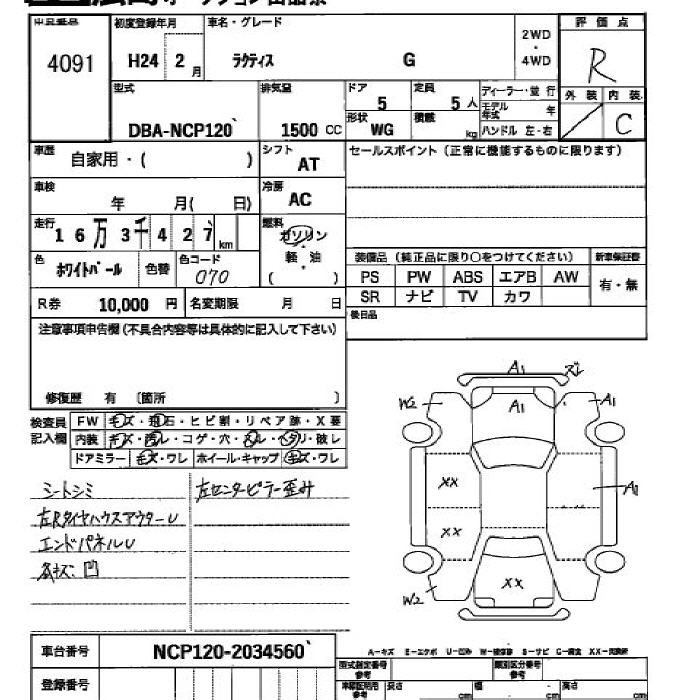 4091
初度登録年月
H24 2 月
車名・グレード
ラクティス G
2WD
・
4WD
評価点
R
外装 内装
C
型式
DBA-NCP120
排気量
1500 CC
ドア
5
定員
5 人
形状
WG
積載
kg
ディーラー・並行
モデル年式 年
ハンドル 左・右
車歴
自家用・( )
シフト
AT
セールスポイント（正常に機能するものに限ります）
車検
年 月( 日)
冷房
AC
走行
16万3千427 km
燃料
ガソリン
・
軽油
・
( )
色
ホワイトパール
色替
色コード
070
装備品（純正品に限り○をつけてください）
新車保証書
PS PW ABS エアB AW
有・無
SR ナビ TV カワ
R券 10,000 円
名変期限 月 日
後日品
注意事項申告欄（不具合内容等は具体的に記入して下さい）
修復歴 有 〔箇所 〕
検査員
記入欄
FW キズ・飛石・ヒビ割・リペア跡・X要
内装 キズ・汚レ・コゲ・穴・スレ・ヘタリ・破レ
ドアミラー キズ・ワレ ホイール・キャップ キズ・ワレ
シートシミ
左センターピラー歪み
左RタイヤハウスアウターU
エンドパネルU
各キズ・凹
A1
ズレ
W2
A1
A1
XX
A1
XX
XX
W2
A－キズ E－エクボ U－凹み W－補修跡 S－サビ C－腐食 XX－交換済
車台番号
NCP120-2034560
型式指定番号
参考
類別区分番号
参考
登録番号
長さ cm
幅 cm
高さ cm